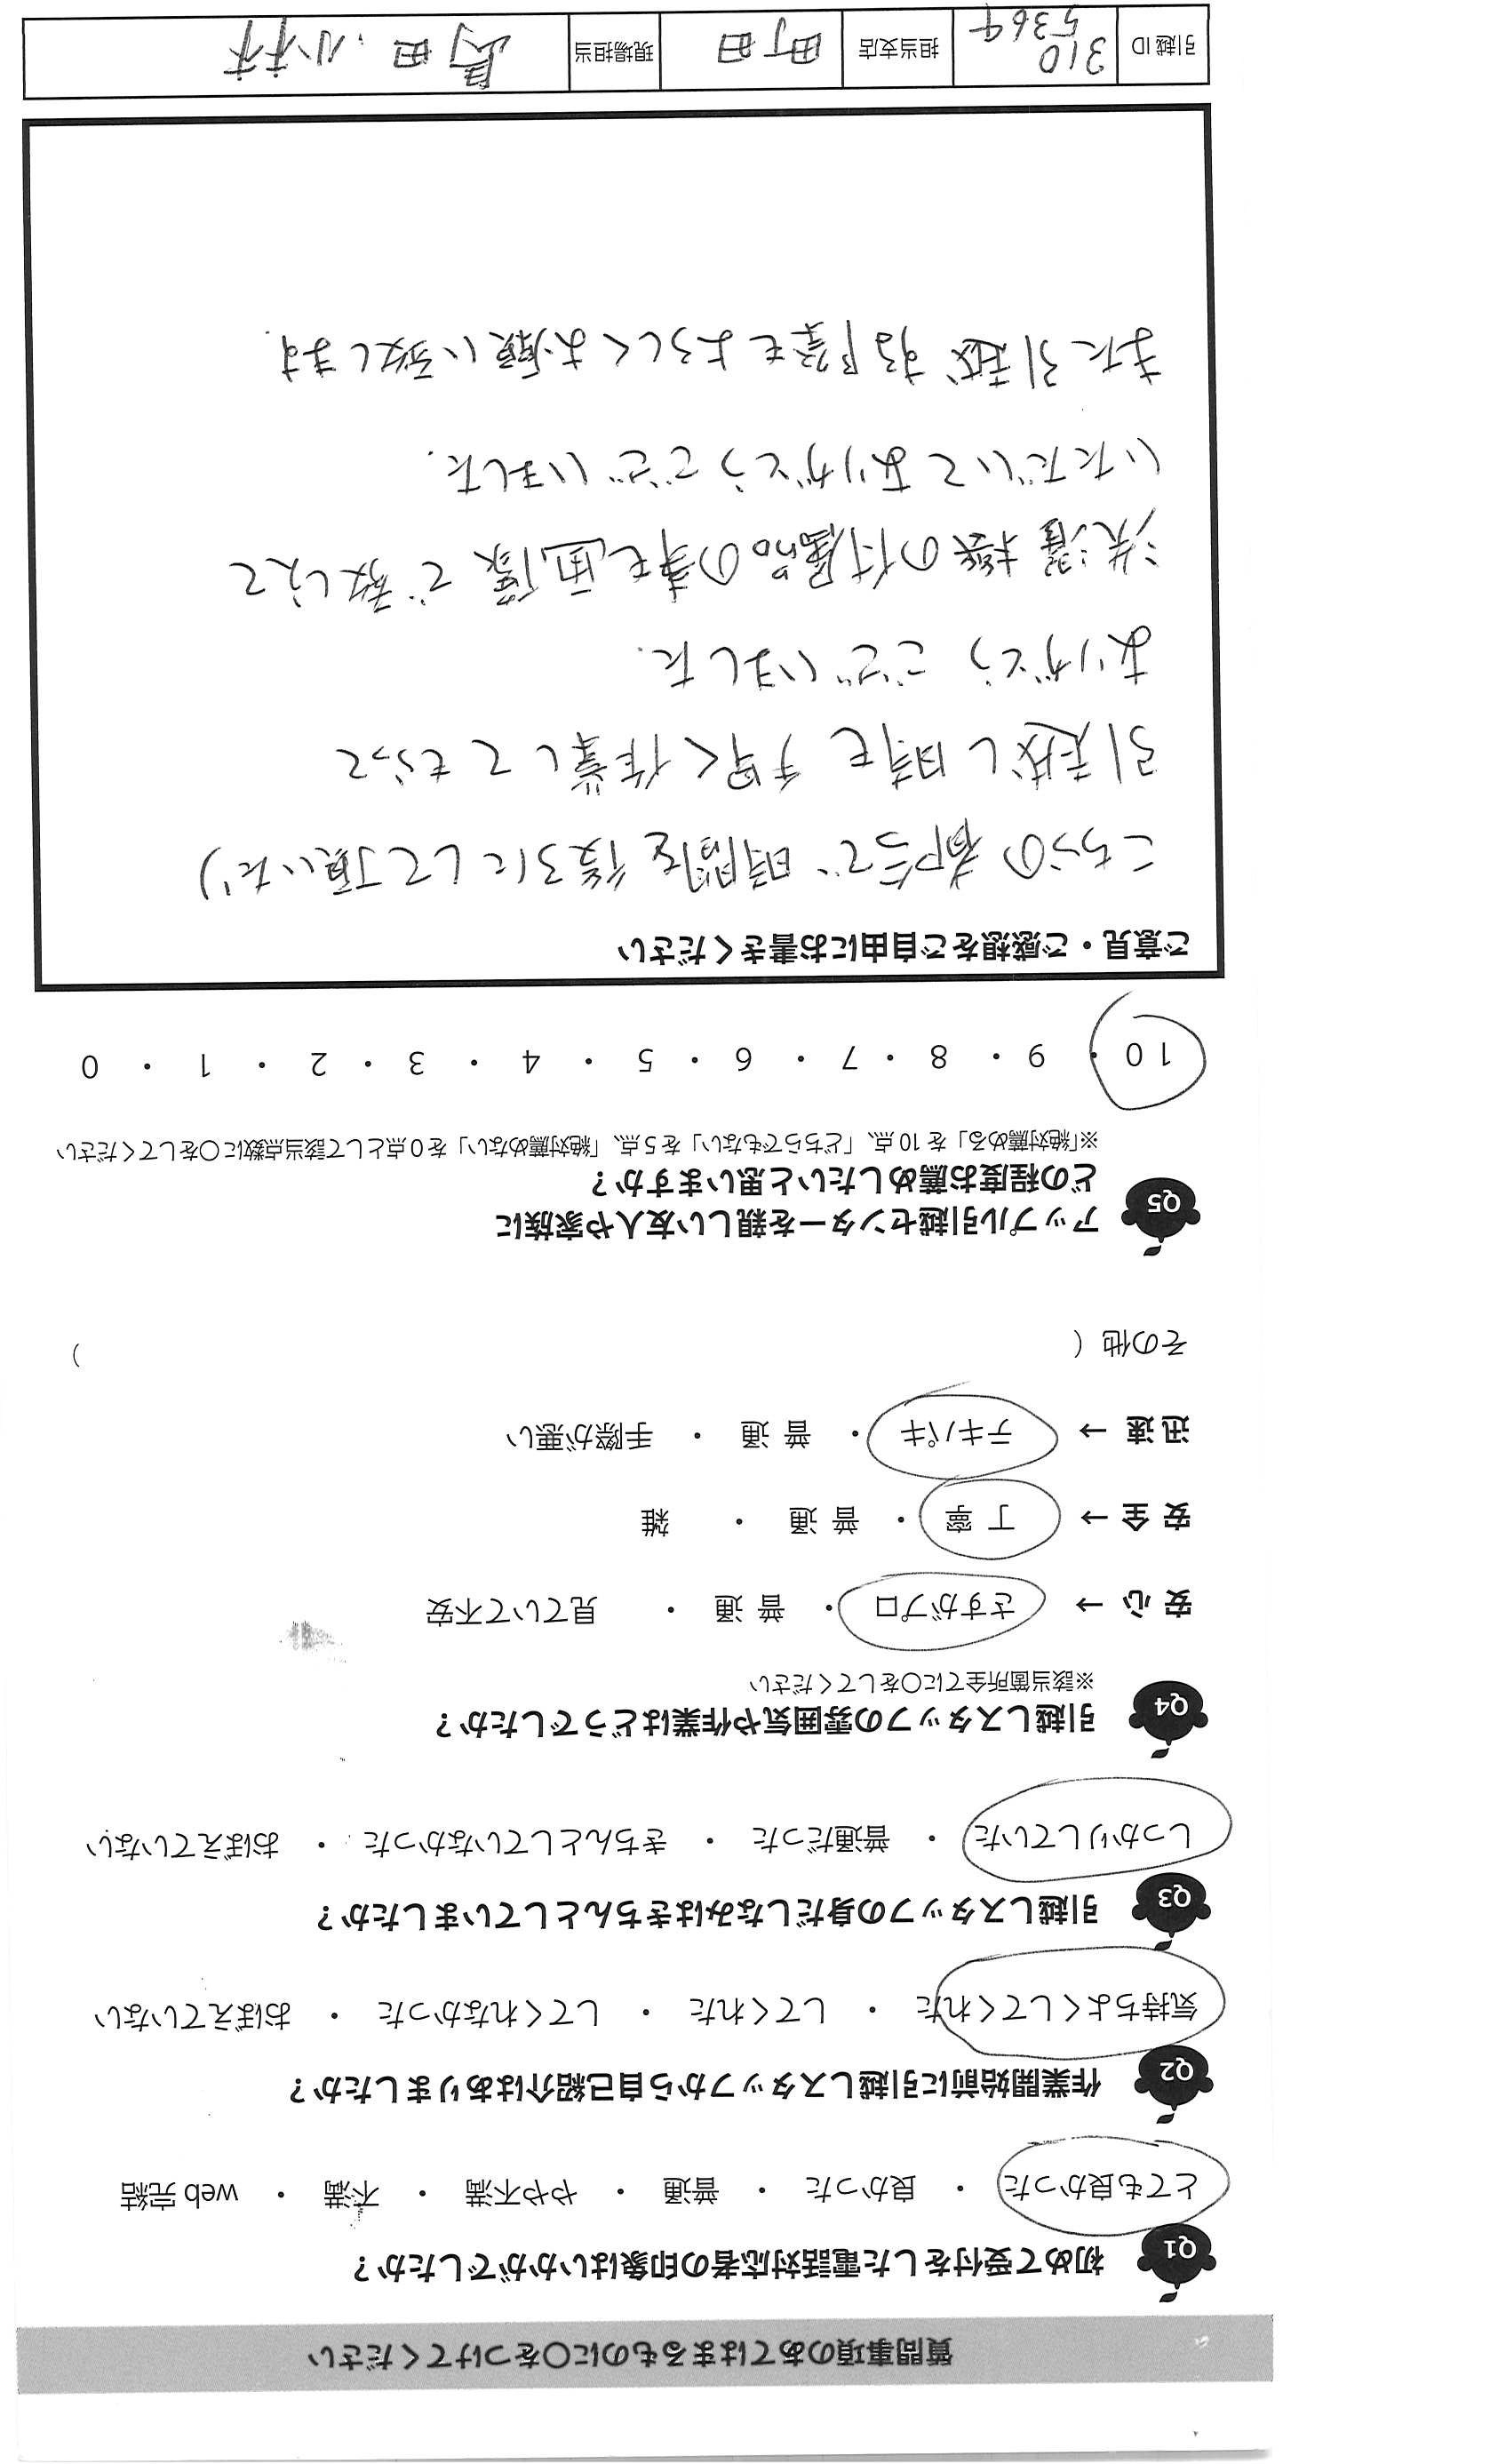 質問事項のあてはまるものに○をつけてください
Q1 初めて受付をした電話対応者の印象はいかがでしたか？
とても良かった ・ 良かった ・ 普通 ・ やや不満 ・ 不満 ・ web 完結
Q2 作業開始前に引越しスタッフから自己紹介はありましたか？
気持ちよくしてくれた ・ してくれた ・ してくれなかった ・ おぼえていない
Q3 引越しスタッフの身だしなみはきちんとしていましたか？
しっかりしていた ・ 普通だった ・ きちんとしていなかった ・ おぼえていない
Q4 引越しスタッフの雰囲気や作業はどうでしたか？
※該当箇所全てに○をしてください
安心 → さすがプロ ・ 普通 ・ 見ていて不安
安全 → 丁寧 ・ 普通 ・ 雑
迅速 → テキパキ ・ 普通 ・ 手際が悪い
その他（ ）
Q5 アップル引越センターを親しい友人や家族に
どの程度お薦めしたいと思いますか？
※「絶対薦める」を10点、「どちらでもない」を5点、「絶対薦めない」を0点として該当点数に○をしてください
10 ・ 9 ・ 8 ・ 7 ・ 6 ・ 5 ・ 4 ・ 3 ・ 2 ・ 1 ・ 0
ご意見・ご感想をご自由にお書きください
こちらの都合で時間を後ろにして頂いたり
引越し時も手早く作業してもらって
ありがとうございました.
洗濯機の付属品の事も画像で教えて
いただいてありがとうございました.
また引越する際もよろしくお願い致します.
引越ID 310 5364 担当支店 町田 現場担当 島田、小林